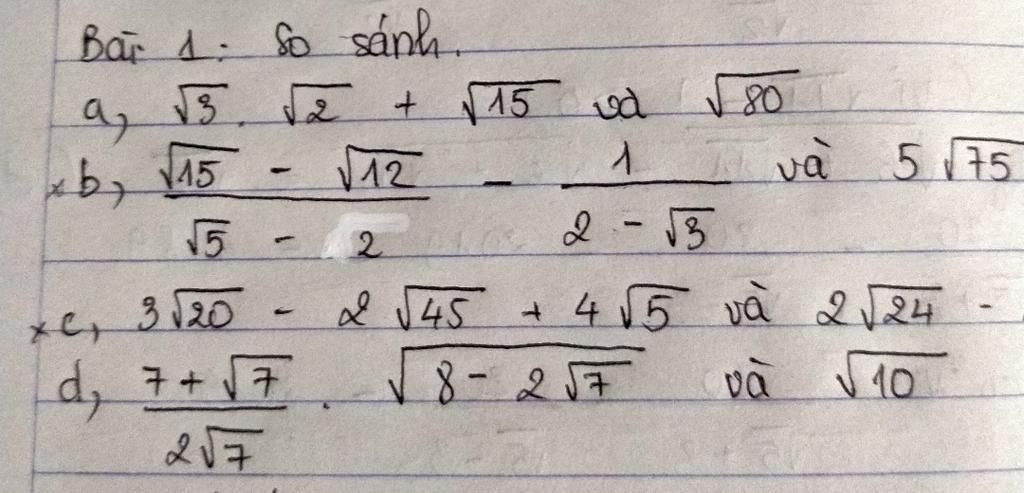 Bài 1: So sánh.
a, √3. √2 + √15 và √80
*b, (√15 - √12)/(√5 - 2) - 1/(2 - √3) và 5√75
*c, 3√20 - 2√45 + 4√5 và 2√24 -
d, (7 + √7)/(2√7) . √(8 - 2√7) và √10